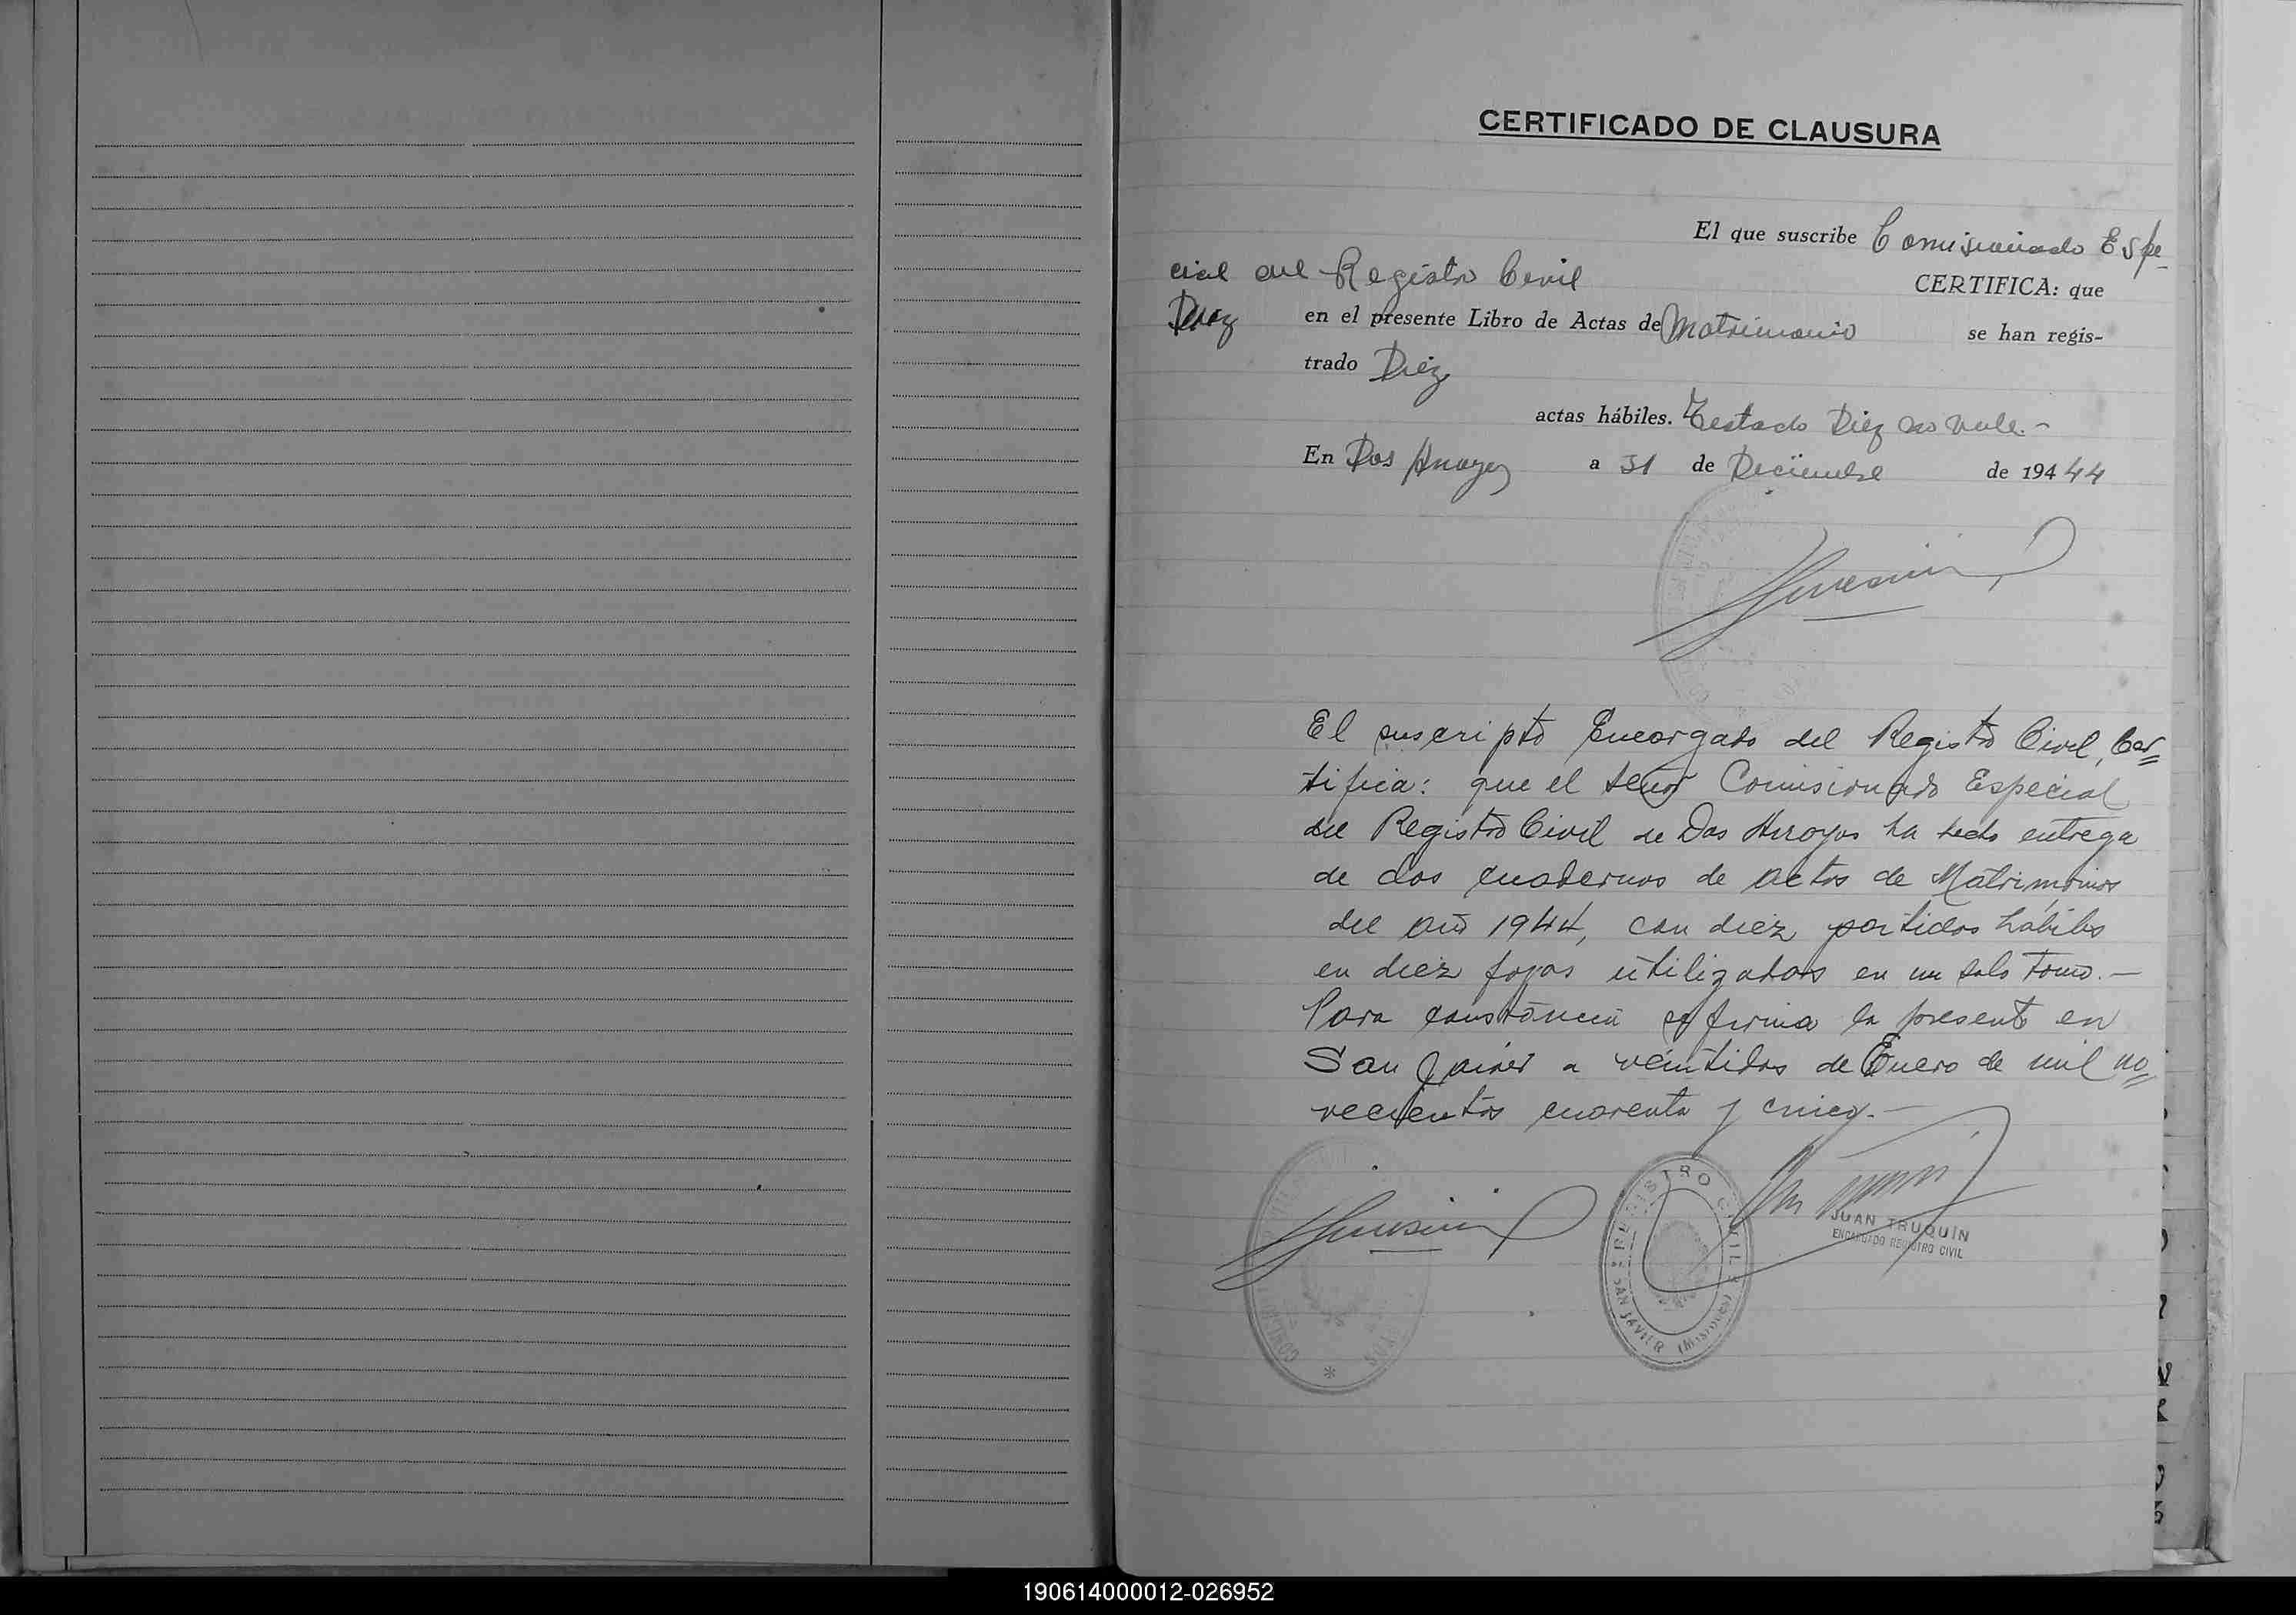 CERTIFICADO DE CLAUSURA
El que suscribe Comisionado Espe-
cial del Registro Civil
CERTIFICA: que
Diez en el presente Libro de Actas de Matrimonio se han regis-
trado Diez
actas hábiles. Testado Diez no vale.-
En Dos Arroyos a 31 de Diciembre de 194 44
El suscripto Encargado del Registro Civil, Cer=
tifica: que el señor Comisionado Especial
del Registro Civil de Dos Arroyos ha hecho entrega
de dos cuadernos de actas de Matrimonios
del año 1944, con diez partidas hábiles
en diez fojas utilizadas en un solo tomo.-
Para constancia se firma la presente en
San Javier a veintidos de Enero de mil no=
vecientos cuarenta y cinco.-
REGISTRO CIVIL
SAN JAVIER (Misiones)
JUAN TRUQUIN
ENCARGADO REGISTRO CIVIL
190614000012-026952